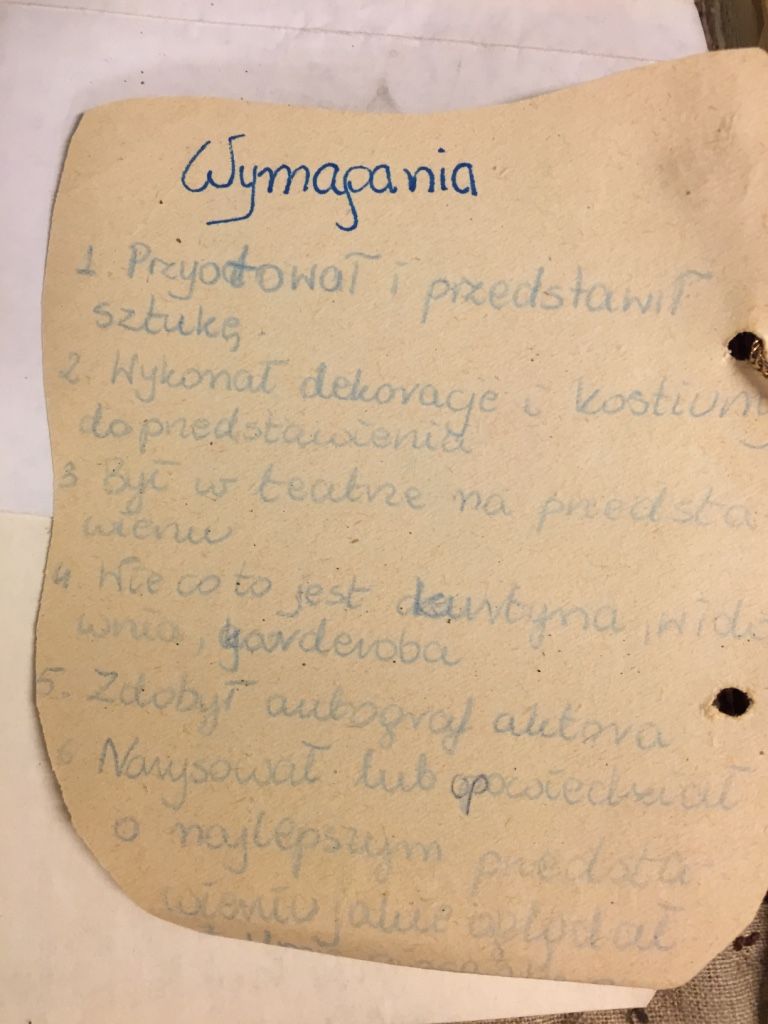 Wymagania
1. Przygotował i przedstawił
sztukę.
2. Wykonał dekoracje i kostiumy
do przedstawienia
3 Był w teatrze na przedsta
wieniu
4. Wie co to jest kurtyna, wido
wnia, garderoba
5. Zdobył autograf aktora
6 Narysował lub opowiedział
o najlepszym przedsta
wieniu jakie oglądał